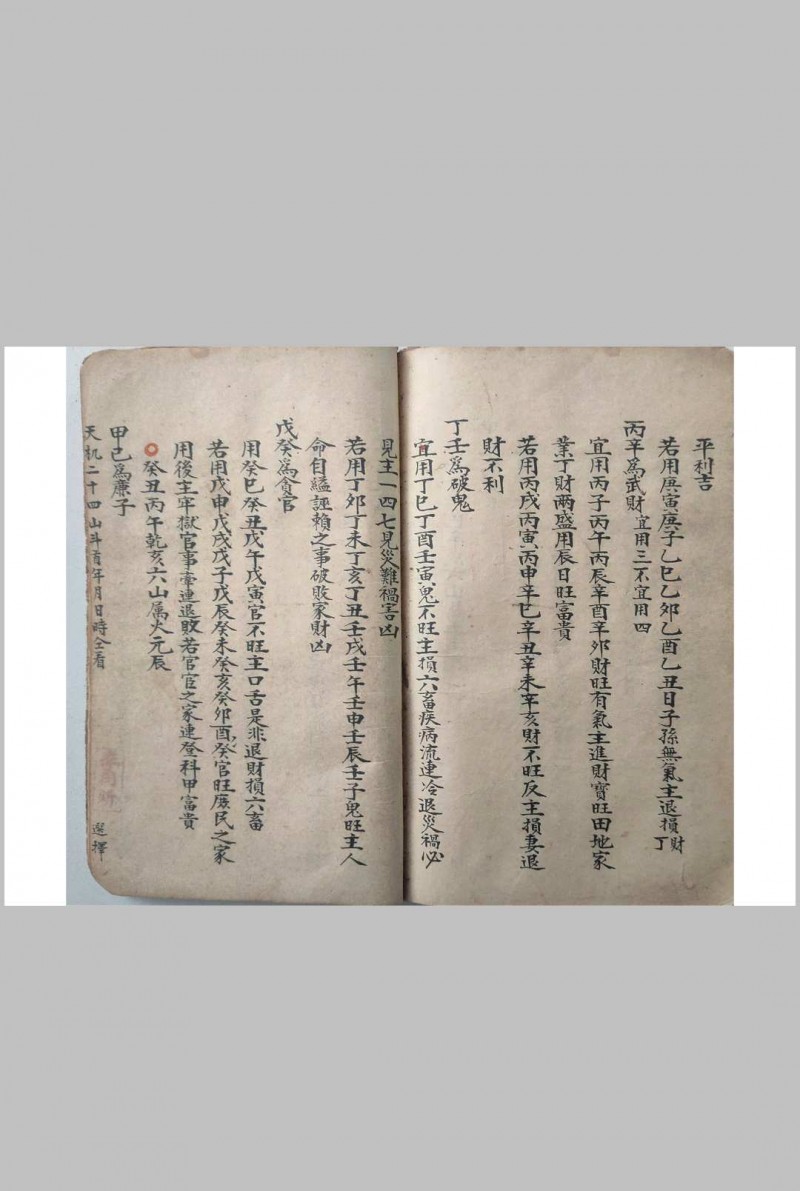 平利吉
若用庚寅庚子乙巳乙夘乙酉乙丑日子孫無氣主退損財丁
丙辛爲武財宜用三不宜用四
宜用丙子丙午丙辰辛酉辛夘財旺有氣主進財寳旺田地家
業丁財兩盛用辰日旺富貴
若用丙戌丙寅丙申辛巳辛丑辛未辛亥財不旺反主損妻退
財不利
丁壬爲破鬼
宜用丁巳丁酉壬寅鬼不旺主損六畜疾病流連冷退災禍必
見主一四七見災難禍害凶
若用丁夘丁未丁亥丁丑壬戌壬午壬申壬辰壬子鬼旺主人
命自縊誣賴之事破敗家財凶
戊癸爲貪官
用癸巳癸丑戊午戊寅官不旺主口舌是非退財損六畜
若用戊申戊戌戊子戊辰癸未癸亥癸卯酉癸官旺庶民之家
用後主牢獄官事牽連退敗若官宦之家連登科甲富貴
癸丑丙午乾亥六山属火元辰
甲己爲廉子
天机二十四山斗首年月日時全看
選擇